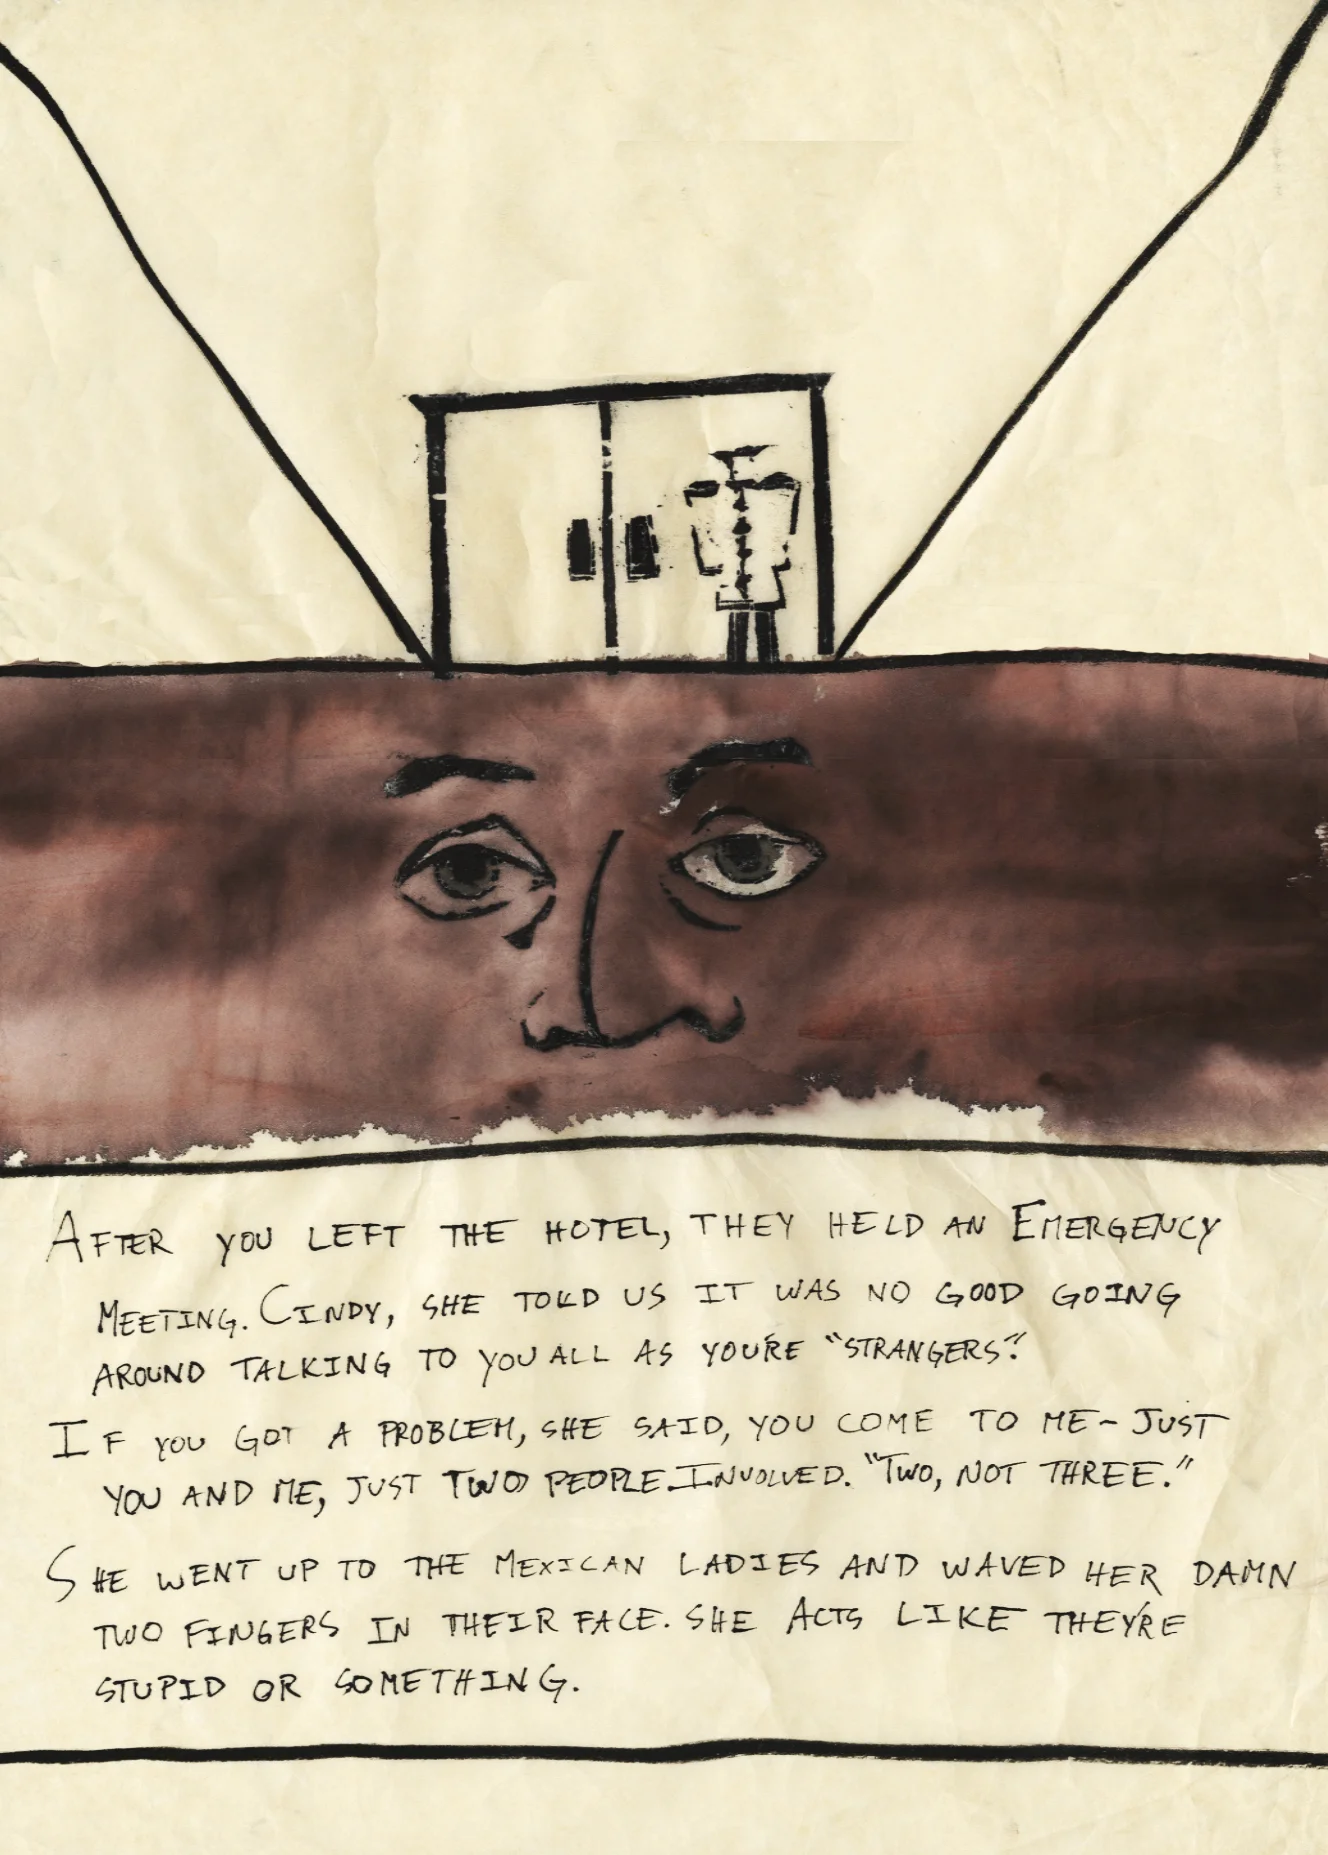 AFTER YOU LEFT THE HOTEL, THEY HELD AN EMERGENCY
MEETING. CINDY, SHE TOLD US IT WAS NO GOOD GOING
AROUND TALKING TO YOU ALL AS YOU'RE "STRANGERS".
IF YOU GOT A PROBLEM, SHE SAID, YOU COME TO ME - JUST
YOU AND ME, JUST TWO PEOPLE INVOLVED. "TWO, NOT THREE."
SHE WENT UP TO THE MEXICAN LADIES AND WAVED HER DAMN
TWO FINGERS IN THEIR FACE. SHE ACTS LIKE THEY'RE
STUPID OR SOMETHING.